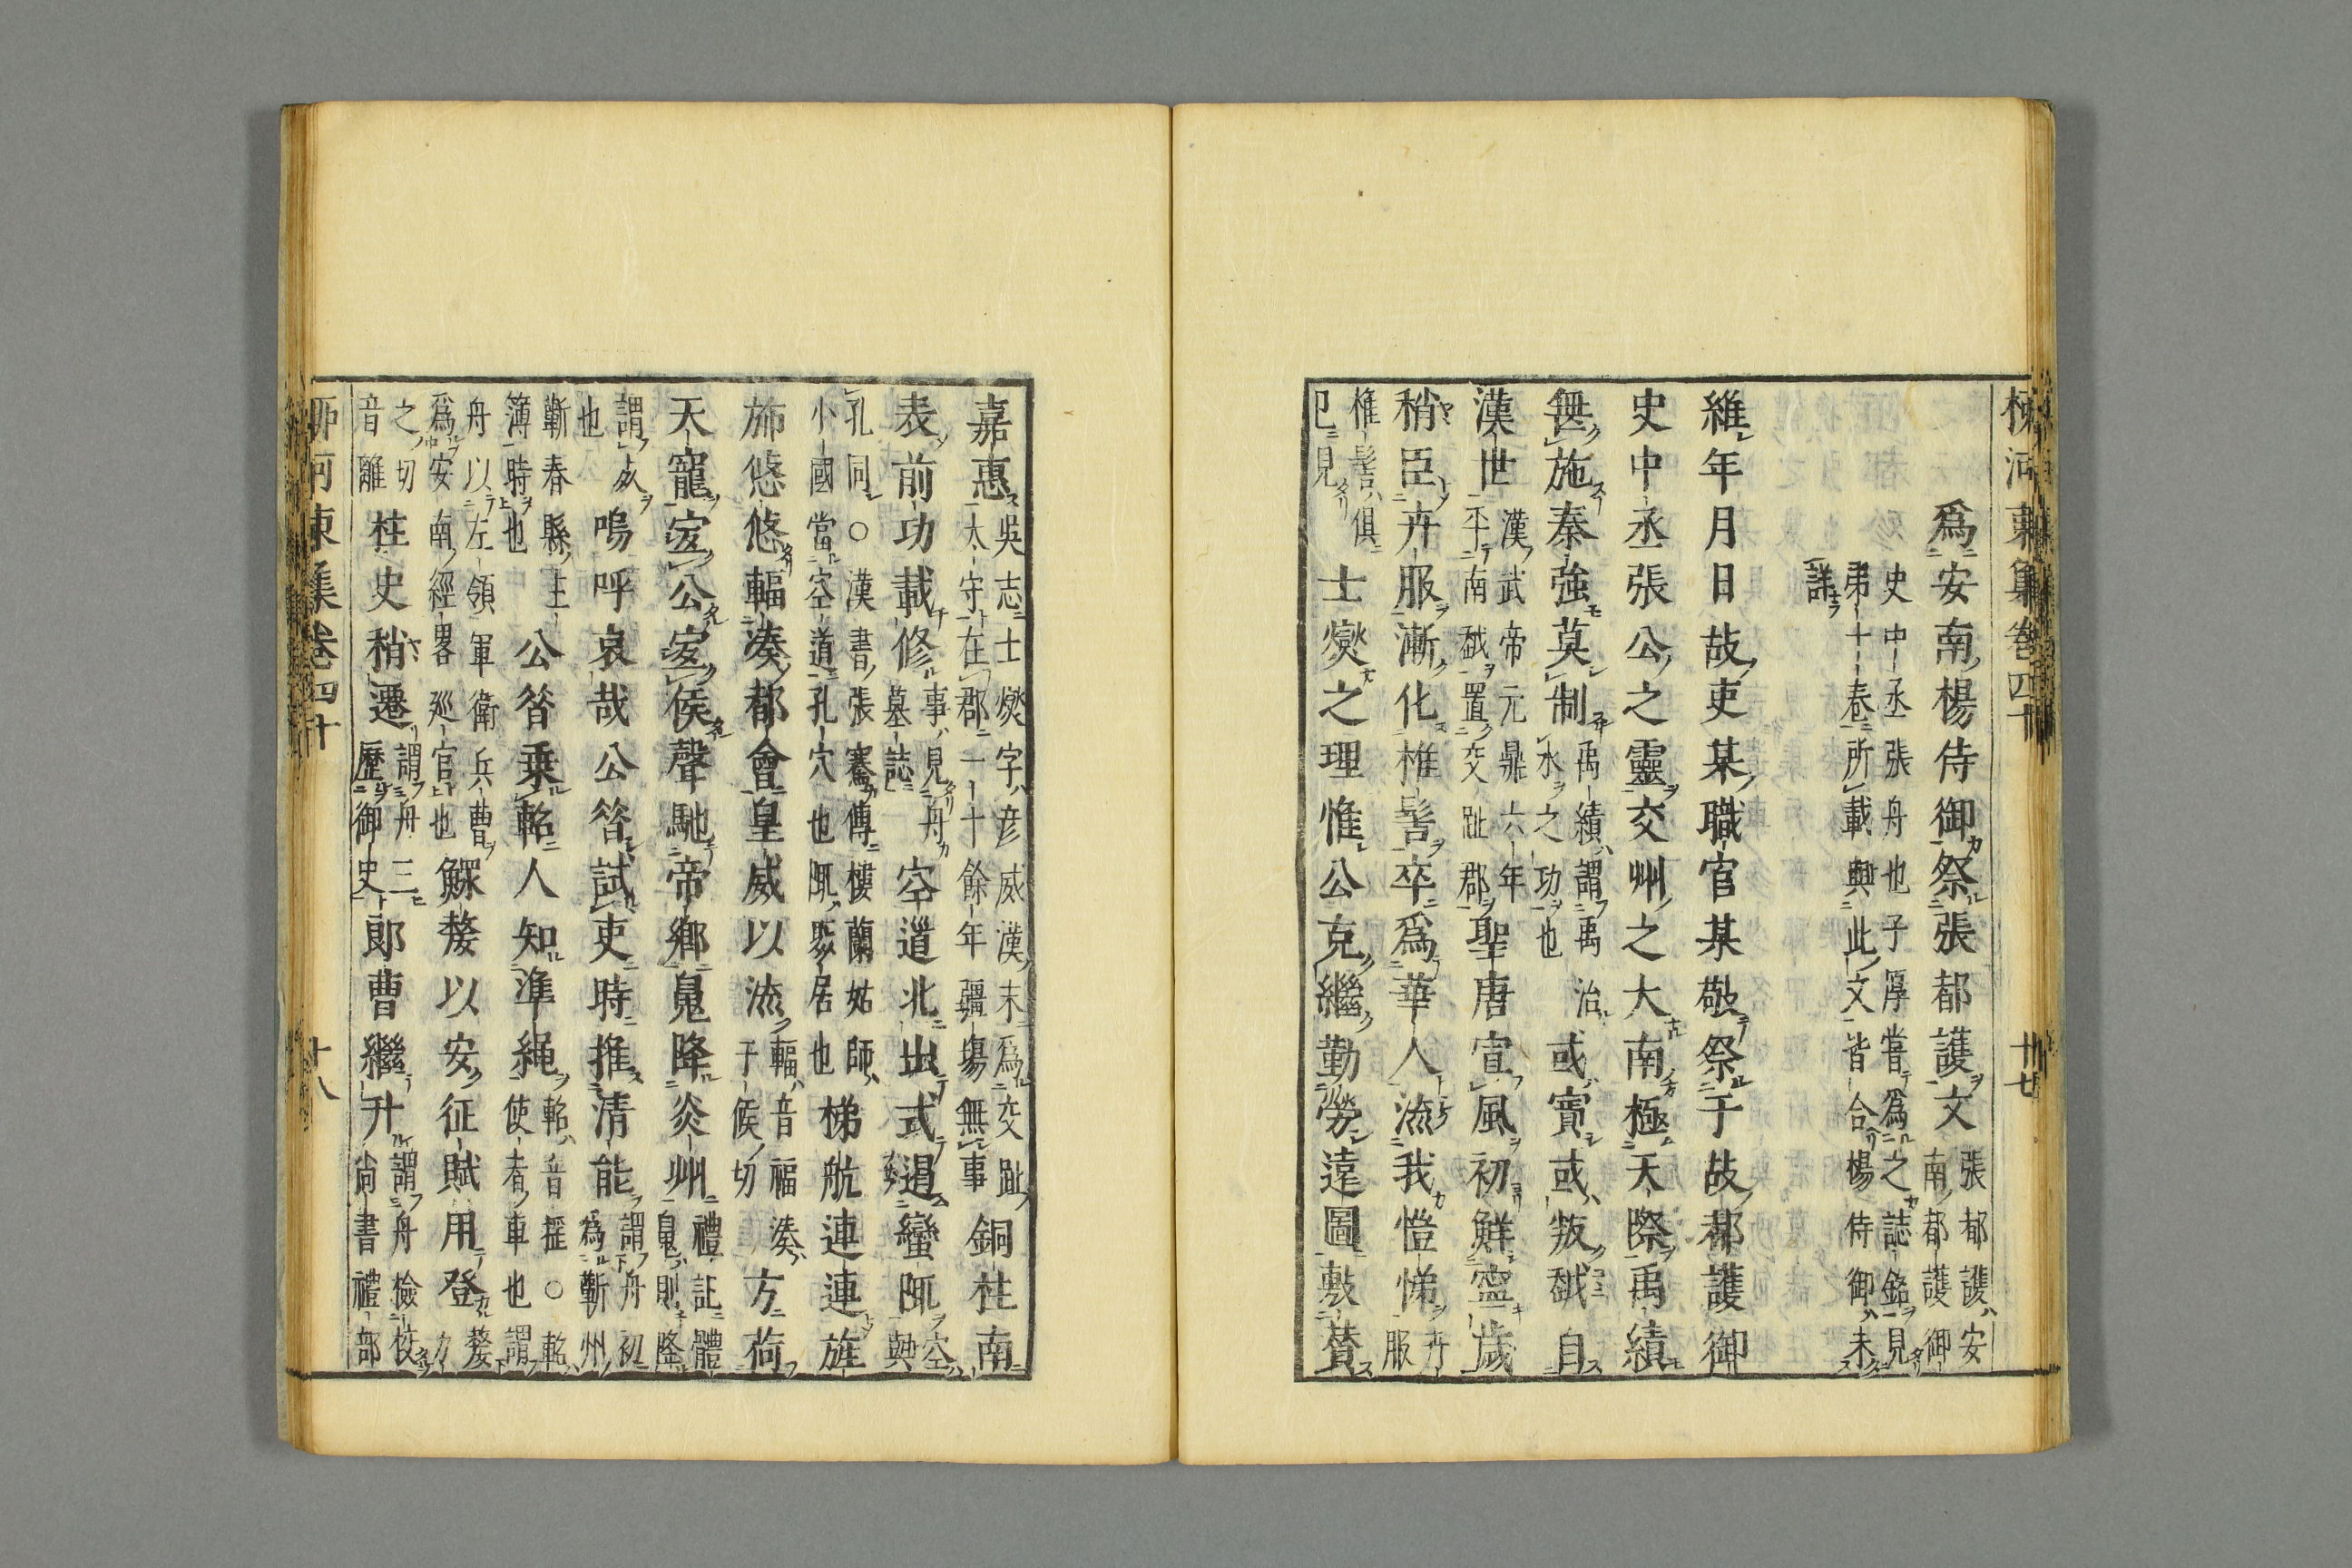 柳河東集卷四十　十七
爲安南楊侍御祭張都護文張都護安南都護御
史中丞張舟也子厚嘗爲之誌銘見第十卷所載與此文皆合楊侍御未
詳
維年月日故吏某職官某敬祭于故都護御
史中丞張公之靈交州之大南極天際禹績
無施秦強莫制禹績謂禹治水之功也或賓或叛越自
漢世漢武帝元鼎六年平南越置交趾郡聖唐宣風初鮮寧歲
稍臣卉服漸化椎髻卒爲華人流我愷悌卉服
椎髻俱已見士燮之理惟公克繼勤勞遠圖敷贊
嘉惠吳志士燮字彥威漢末爲交趾太守在郡二十餘年疆場無事銅柱南
表前功載修事見舟墓誌空道北出式遏蠻陬空與
孔同○漢書張騫傳樓蘭姑師小國當空道孔穴也陬聚居也梯航連連旌
斾悠悠輻湊都會皇威以流輻音福湊于候切方荷
天寵宜公宜侯聲馳帝鄉鬼降炎州禮記體鬼則降
謂死也嗚呼哀哉公昝試吏時推清能謂舟初爲蘄州
蘄春縣主簿時也公昝乗軺人知準繩軺音搖○軺使者車也謂
舟以左領軍衛兵曹爲安南經畧巡官也鰥嫠以安征賦用登嫠力
之切音離柱史稍遷謂舟三歷御史郎曹繼升謂舟檢校尚書禮部
柳河東集卷四十　十八